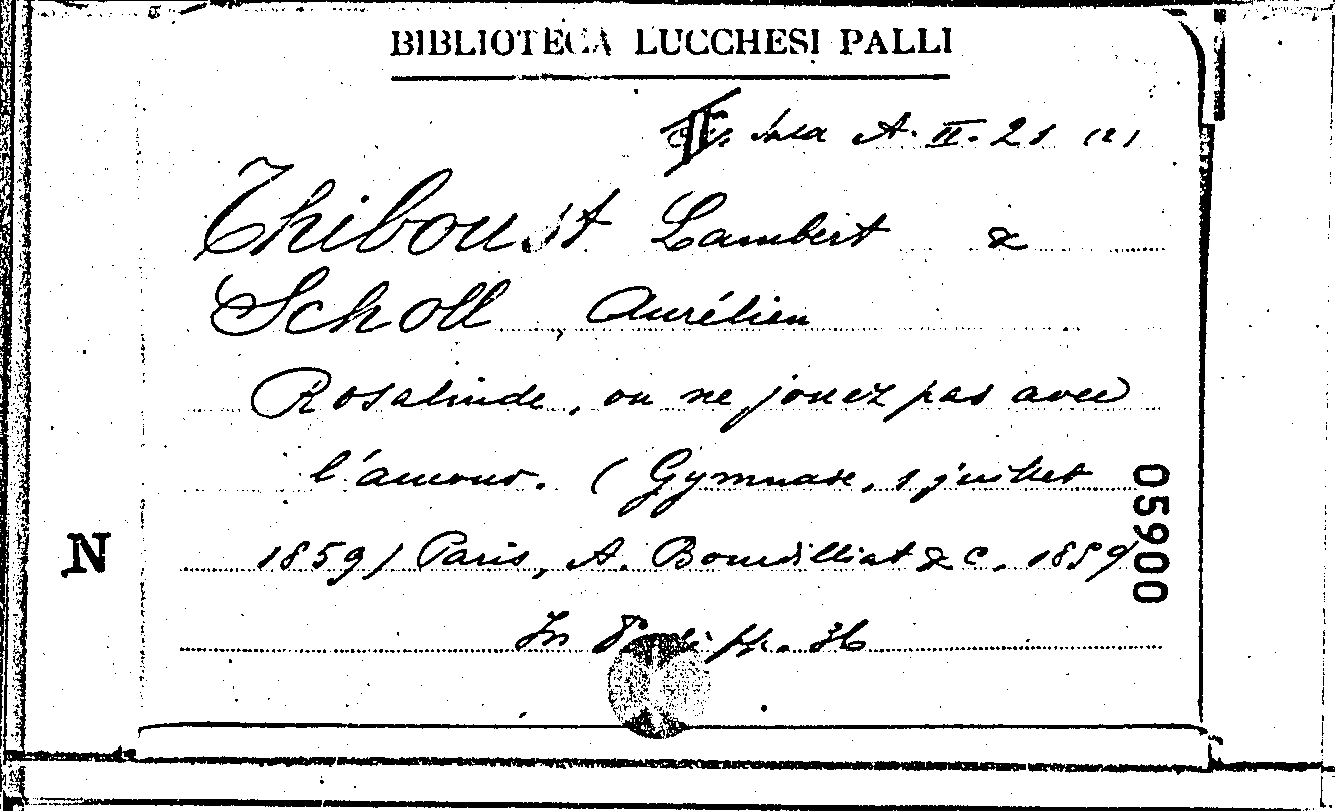 BIBLIOTECA LUCCHESI PALLI
Sala A. II. 21 (2)
Thiboust Lambert &
Scholl, Aurélien
Rosalinde, ou ne jouez pas avec
l'amour. (Gymnase, 1 juillet
1859) Paris, A. Bourdilliat & C. 1859
In 8° di pp. 36
N
05900